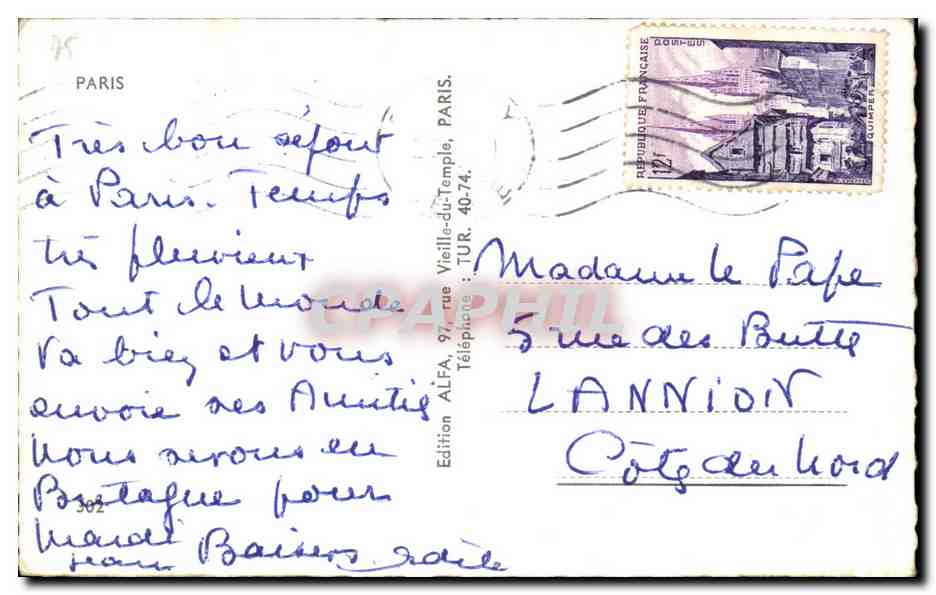 75
PARIS
Très bon séjour
à Paris. Temps
très pluvieux
Tout le monde
va bien et vous
envoie ses Amitiés
Nous serons en
Bretagne pour
302
Mardi
Jean Baisers Odile
Edition ALFA, 97, rue Vieille-du-Temple, PARIS.
Téléphone : TUR. 40-74.
REPUBLIQUE FRANÇAISE
POSTES
12f
QUIMPER
Madame le Pape
5 rue des Buttes
LANNION
Côtes du Nord
CPAPHIL